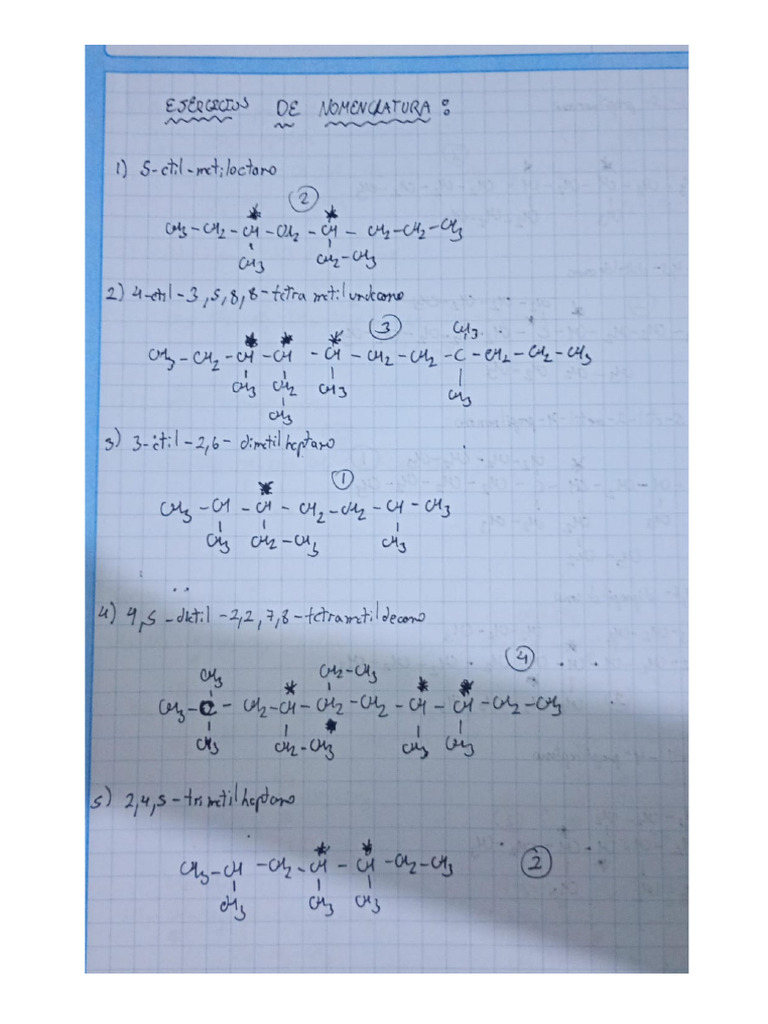 EJERCICIOS DE NOMENCLATURA:
1) 5-etil-metiloctano
②
* *
CH3-CH2-CH-CH2-CH-CH2-CH2-CH3
CH3 CH2-CH3
2) 4-etil-3,5,8,8-tetrametilundecano
③ CH3
* * *
CH3-CH2-CH-CH-CH-CH2-CH2-C-CH2-CH2-CH3
CH3 CH2 CH3 CH3
CH3
3) 3-etil-2,6-dimetilheptano
* ①
CH3-CH-CH-CH2-CH2-CH-CH3
CH3 CH2-CH3 CH3
4) 4,5-dietil-2,2,7,8-tetrametildecano
④
CH3 CH2-CH3
* * *
CH3-C-CH2-CH-CH2-CH2-CH-CH-CH2-CH3
*
CH3 CH2-CH3 CH3 CH3
5) 2,4,5-trimetilheptano
* *
CH3-CH-CH2-CH-CH-CH2-CH3 ②
CH3 CH3 CH3